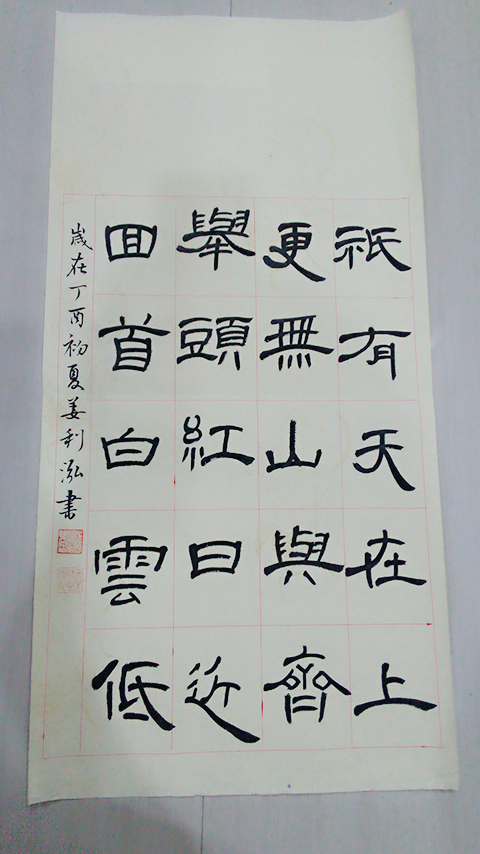 祇有天在上
更無山與齊
舉頭紅日近
回首白雲低
歲在丁酉初夏姜利泓書